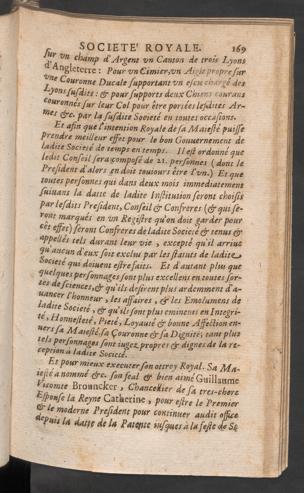 SOCIETE' ROYALE. 169
sur vn champ d'Argent vn Canton de trois Lyons
d'Angleterre: Pour vn Cimier, vn Aigle propre sur
vne Couronne Ducale supportant vn escu chargé des
Lyons susdits: & pour supports deux Chiens courans
couronnés sur leur Col pour être portées lesdites Ar-
mes &c. par la susdite Societé en toutes occasions.
Et afin que l'intention Royale de sa Maiesté puisse
prendre meilleur effet pour le bon Gouuernement de
ladite Societé de temps en temps. Il est ordonné que
ledit Conseil sera composé de 21. personnes (dont le
President d'alors en doit toûiours être l'vn.) Et que
toutes personnes qui dans deux mois immediatement
suiuans la datte de ladite Institution seront choisis
par lesdits President, Conseil & Confreres (& qui se-
ront marqués en vn Registre qu'on doit garder pour
cét effet) seront Confreres de ladite Societé & tenus &
appellés tels durant leur vie, excepté qu'il arriue
qu'aucun d'eux soit exclus par les statuts de ladite
Societé qui doiuent estre faits. Et d'autant plus que
quelques personnages sont plus excellens en toutes sor-
tes de sciences, & qu'ils desirent plus ardemment d'a-
uancer l'honneur, les affaires, & les Emolumens de
ladite Societé, & qu'ils sont plus eminens en Integri-
té, Honnesteté, Pieté, Loyauté & bonne Affection en-
uers sa Maiesté, sa Couronne & sa Dignité; tant plus
tels personnages sont iugez propres & dignes de la re-
ception à ladite Societé.
Et pour mieux executer son ottroy Royal. Sa Ma-
iesté a nommé &c. son feal & bien aimé Guillaume
Vicomte Brouncker, Chancelier de sa tres-chere
Espouse la Reyne Catherine, pour estre le Premier
& le moderne President pour continuer audit office
depuis la datte de la Patente iusques à la feste de St